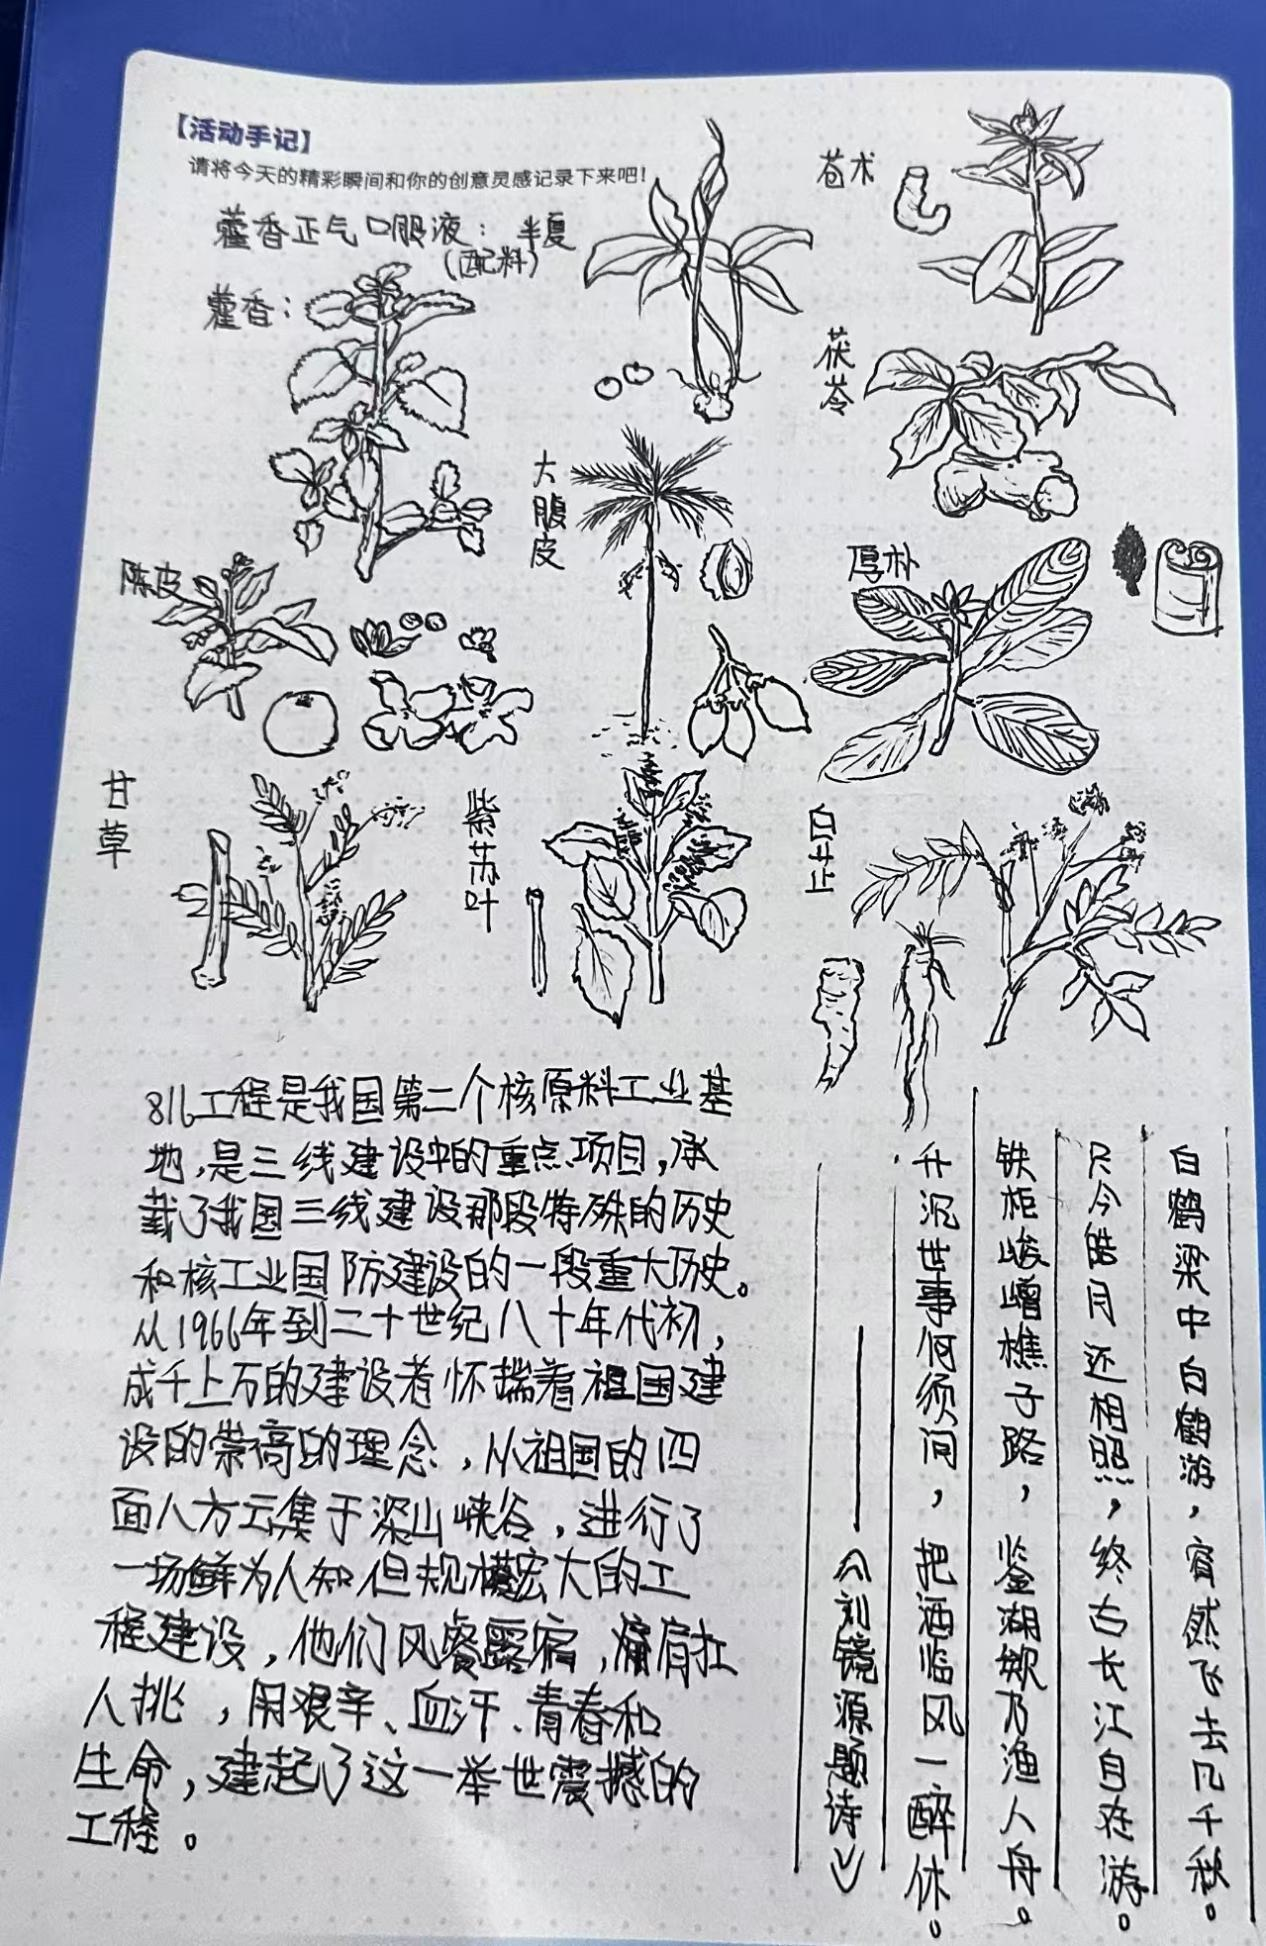 【活动手记】
请将今天的精彩瞬间和你的创意灵感记录下来吧！
藿香正气口服液：半夏
（配料）
藿香：
苍术
茯苓
大腹皮
陈皮
厚朴
甘草
紫苏叶
白芷
816工程是我国第二个核原料工业基
地，是三线建设中的重点项目，承
载了我国三线建设那段特殊的历史
和核工业国防建设的一段重大历史。
从1966年到二十世纪八十年代初，
成千上万的建设者怀揣着祖国建
设的崇高的理念，从祖国的四
面八方云集于深山峡谷，进行了
一场鲜为人知但规模宏大的工
程建设，他们风餐露宿，肩扛
人挑，用艰辛、血汗、青春和
生命，建起了这一举世震撼的
工程。
白鹤梁中白鹤游，窅然飞去几千秋。
只今皓月还相照，终古长江自在游。
铁柜峻嶒樵子路，鉴湖欸乃渔人舟。
升沉世事何须问，把酒临风一醉休。
——《刘镜源题诗》